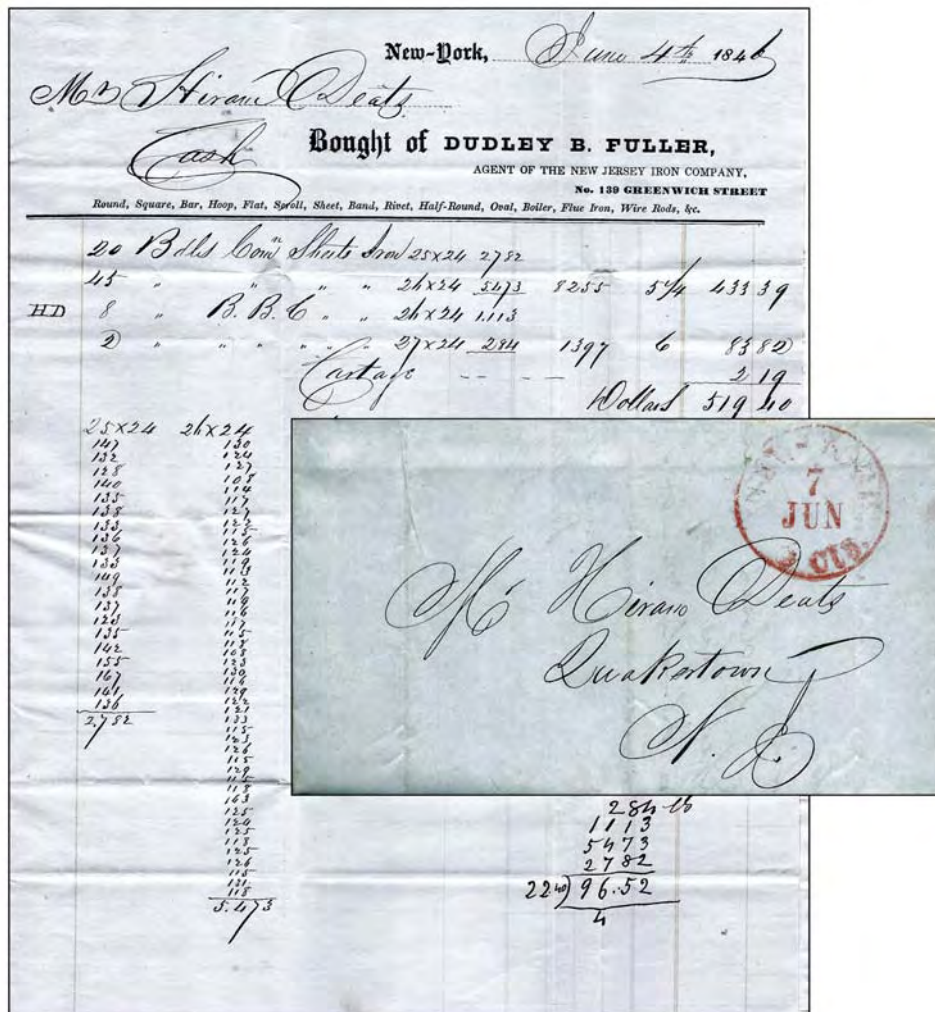 New-York, June 4th 1846
Mr Hiram Deats
Cash
Bought of DUDLEY B. FULLER,
AGENT OF THE NEW JERSEY IRON COMPANY,
No. 139 GREENWICH STREET
Round, Square, Bar, Hoop, Flat, Scroll, Sheet, Band, Rivet, Half-Round, Oval, Boiler, Flue Iron, Wire Rods, &c.
20 Bdls Comn Sheets Iron 25x24 2782
45 " " " " 26x24 5473 8255 5 1/4 433 39
HD 8 " B. B. C " " 26x24 1113
2 " " " " " 27x24 284 1397 6 83 82
Cartage -- -- -- 2 19
Dollars 519 40
25x24 26x24
147 130
132 124
128 127
140 108
135 114
138 117
133 127
136 122
137 115
133 126
149 124
138 119
137 113
123 112
135 117
142 119
155 116
167 117
141 115
136 118
2782 108
123
130
114
129
122
121
133
115
123
126
115
129
115
118
143
125
124
125
118
125
126
115
121
118
5.473
NEW-YORK
7
JUN
5 cts.
Mr Hiram Deats
Quakertown
N. J.
284 lb
1113
5473
2782
22.40) 96.52
4